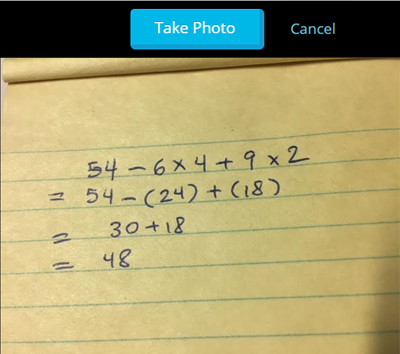 Take Photo Cancel
54 - 6 × 4 + 9 × 2
= 54 - (24) + (18)
= 30 + 18
= 48